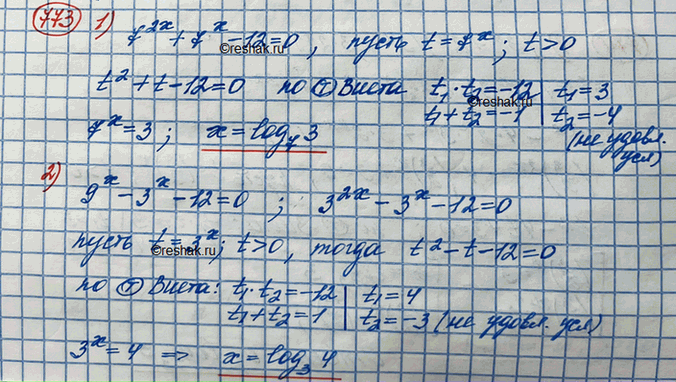 773 1) 7^{2x} + 7^x - 12 = 0, пусть t = 7^x; t > 0
©reshak.ru
t² + t - 12 = 0 по Ⓣ Виета t₁·t₂ = -12 | t₁ = 3
©reshak.ru
t₁ + t₂ = -1 | t₂ = -4
(не удовл. усл)
7^x = 3; x = log₇ 3
2) 9^x - 3^x - 12 = 0; 3^{2x} - 3^x - 12 = 0
пусть t = 3^x; t > 0, тогда t² - t - 12 = 0
©reshak.ru
по Ⓣ Виета: t₁·t₂ = -12 | t₁ = 4
t₁ + t₂ = 1 | t₂ = -3 (не удовл. усл)
3^x = 4 => x = log₃ 4